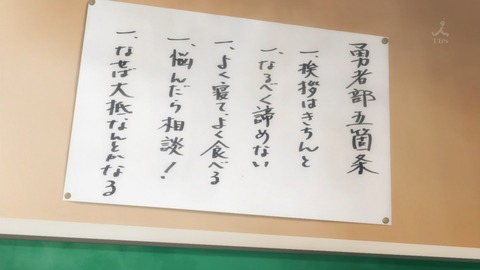 勇者部五箇条
一、挨拶はきちんと
一、なるべく諦めない
一、よく寝て、よく食べる
一、悩んだら相談！
一、なせば大抵なんとかなる
TBS